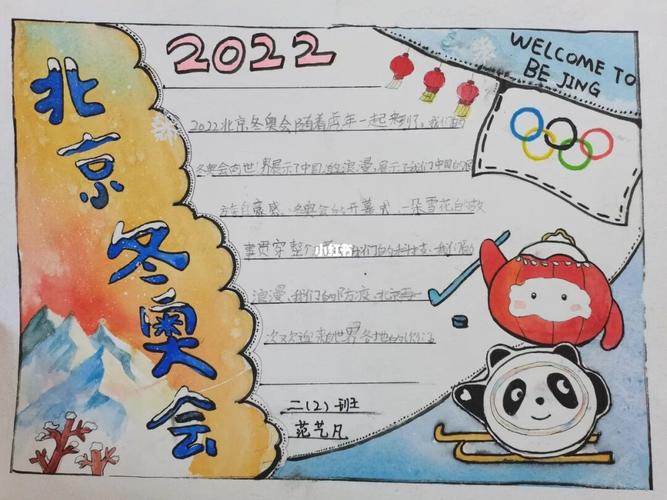 北京冬奥会
2022
WELCOME TO
BE JING
2022北京冬奥会随着虎年一起来到了，我们的
冬奥会向世界展示了中国人的浪漫，展示了我们中国的民
族自豪感，冬奥会的开幕式，一朵雪花的故
事贯穿整个 我们的科技，我们的
小红书
浪漫，我们的防疫，北京再一
次欢迎来自世界各地的
二（2）班
范艺凡